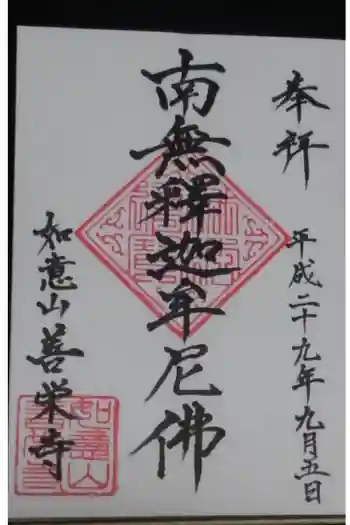 奉拝
平成二十九年九月五日
南無釋迦牟尼佛
如意山善栄寺